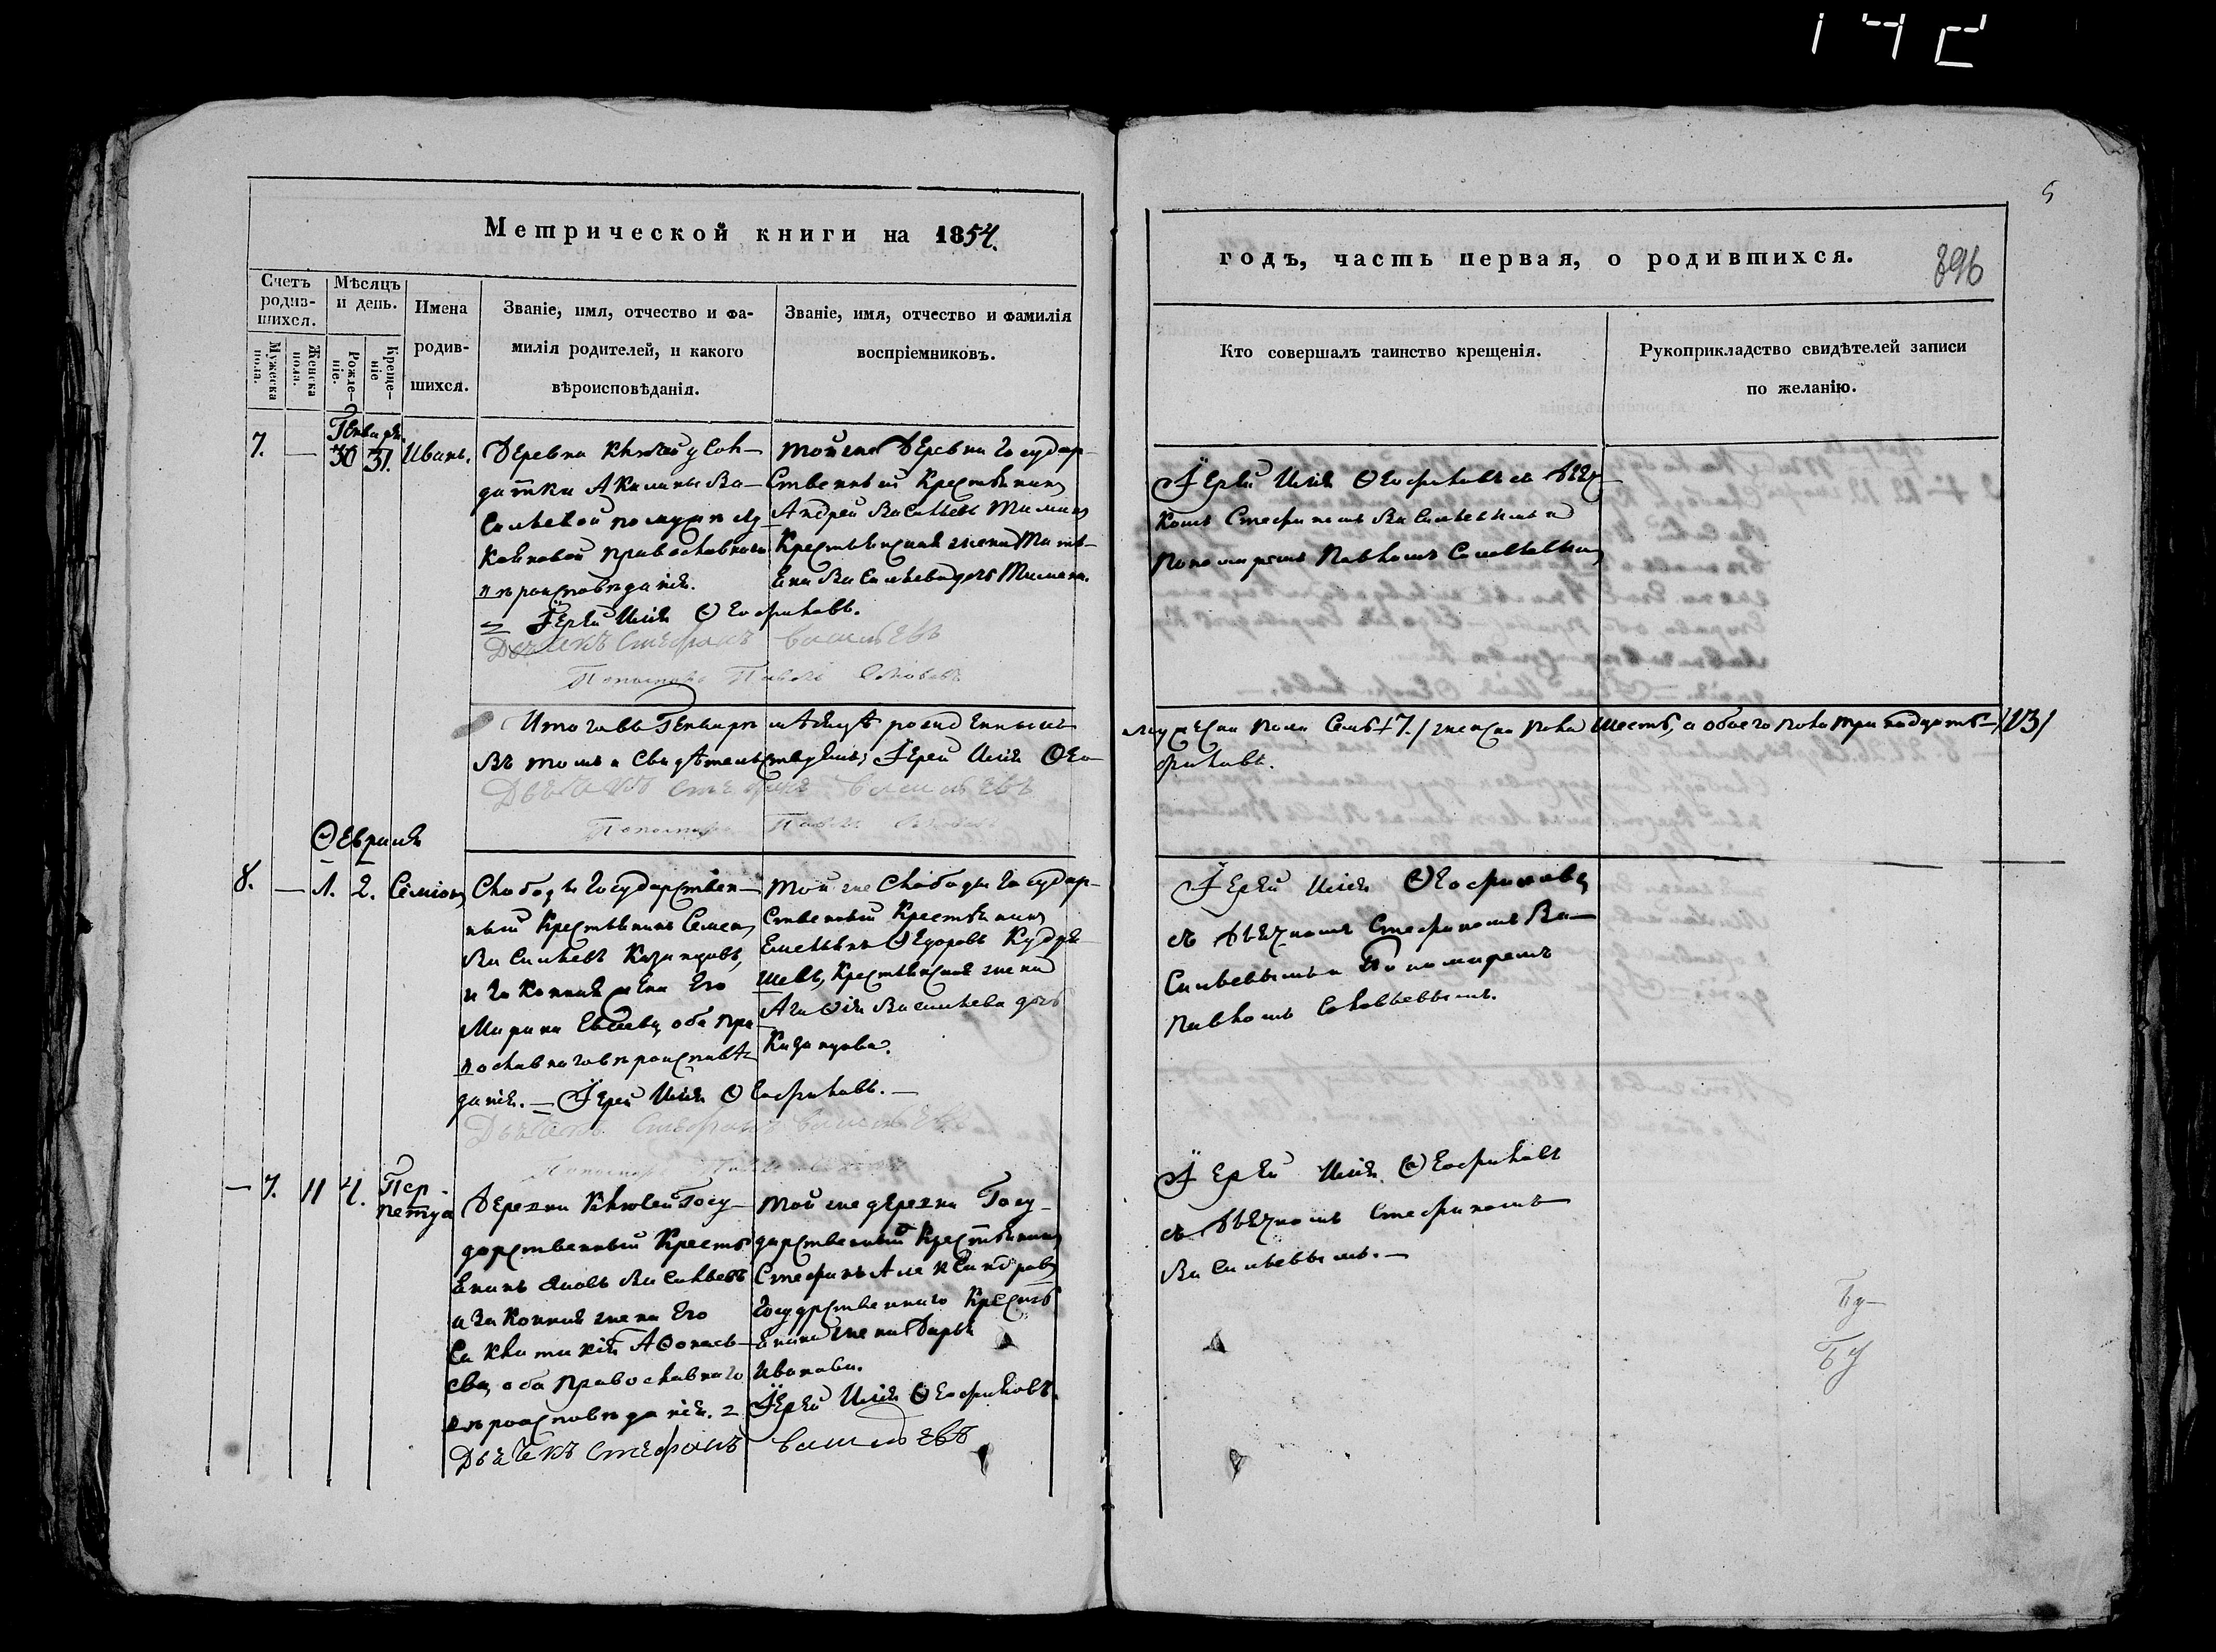 142
5
Метрической книги на 1854.
годъ, часть первая, о родившихся.
896
Счетъ родив-шихся.
Мужеска пола.
Женска пола.
Мѣсяцъ и день.
Рожде-ніе.
Креще-ніе
Имена
родив-
шихся.
Званіе, имя, отчество и фа-
милія родителей, и какого
вѣроисповѣданія.
Званіе, имя, отчество и фамилія
воспріемниковъ.
Кто совершалъ таинство крещенія.
Рукоприкладство свидѣтелей записи
по желанію.
Генваря
7. — 30 31. Иванъ.
Деревни Ключей у сол-
датки Акилины Ва-
сильевой по мужѣ
православнаго
вѣроисповѣданія.
Іерей Илія Ѳеофиловъ.
Дьячекъ Стефанъ Васильевъ
Пономарь Павелъ
той же деревни Государ-
ственный Крестьянинъ
Андрей Васильевъ
Крестьянская жена Тать-
яна Васильева дочь
Іерей Илія Ѳеофиловъ съ дьяч-
комъ Стефаномъ Васильевымъ и
пономаремъ Павломъ
Итого въ Генварѣ мѣсяцѣ рожденныхъ
мужеска пола семь /7./ женска пола шесть, а обоего пола тринадцать /13/
въ томъ и свидѣтельствуемъ: Іерей Илія Ѳео-
филовъ.
Дьячекъ Стефанъ Васильевъ
Пономарь Павелъ
Ѳевраля
8. — 1. 2. Семіонъ
Слободы Государствен-
ный Крестьянинъ Семенъ
Васильевъ Казанцовъ,
и законная жена его
Марина Евсеева, оба пра-
вославнаго вѣроисповѣ-
данія. — Іерей Илія Ѳеофиловъ. —
Дьячекъ Стефанъ Васильевъ
Пономарь Павелъ
той же Слободы Государ-
ственный Крестьянинъ
Емельянъ Ѳедоровъ Кудря-
шевъ, Крестьянская жена
Агаѳія Васильева дочь
Казанцова.
Іерей Илія Ѳеофиловъ
съ дьячкомъ Стефаномъ Ва-
сильевымъ и Пономаремъ
Павломъ Соловьевымъ.
— 7. 11 4. Пер-
петуа
Деревни Ключей Госу-
дарственный Кресть-
янинъ Яковъ Васильевъ
и законная жена его
Аѳонась-
ева, оба православнаго
вѣроисповѣданія.
Дьячекъ Стефанъ Васильевъ
той же деревни Госу-
дарственный Крестьянинъ
Стефанъ Александровъ
Государственнаго Кресть-
янина жена Дарья
Иванова.
Іерей Илія Ѳеофиловъ.
Іерей Илія Ѳеофиловъ
съ дьячкомъ Стефаномъ
Васильевымъ. —